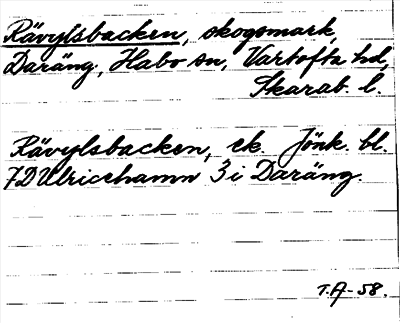 Rävylsbacken, skogsmark,
Daräng, Habo sn, Vartofta hd,
Skarab. l.
Rävylsbacken, ek. Jönk. bl.
7D Ulricehamn 3i Daräng.
T.A-58.